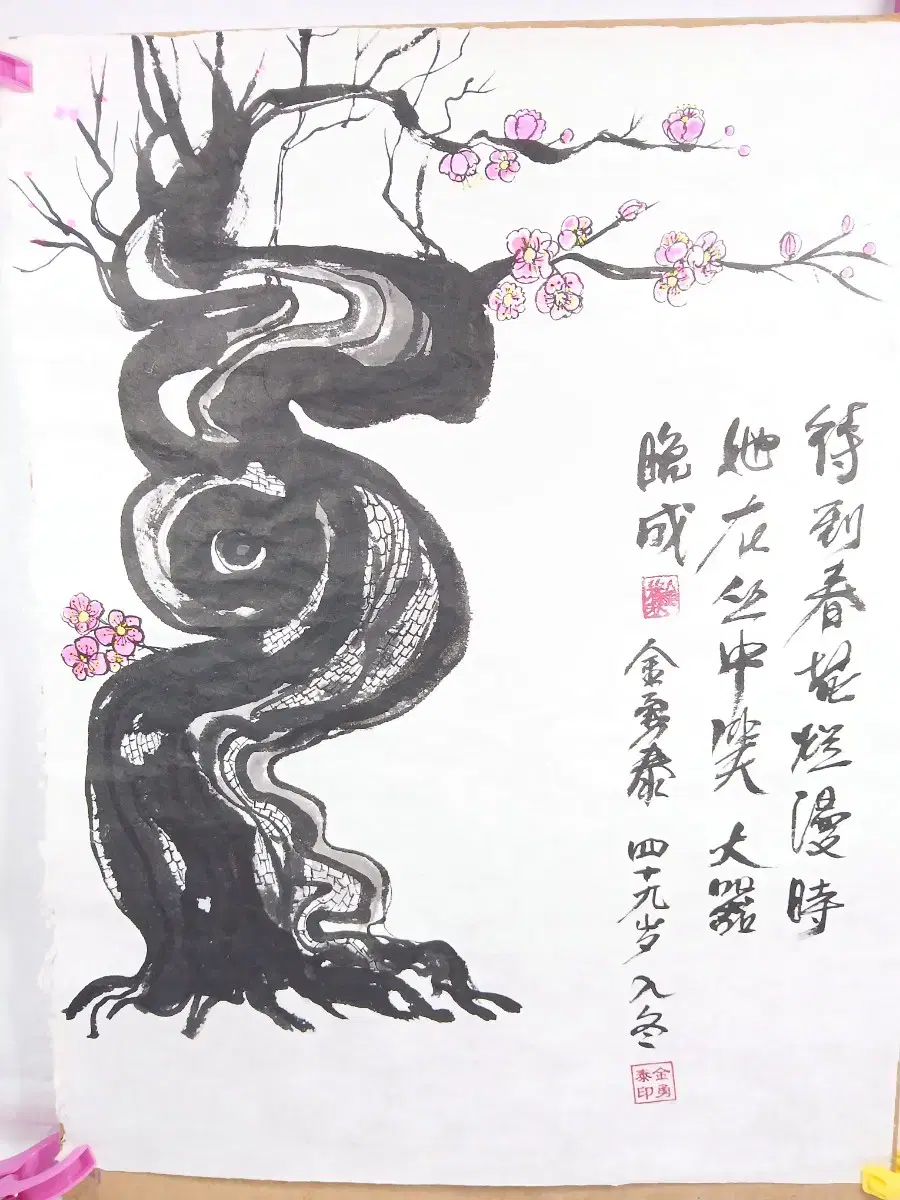 待到春花烂漫時
她在丛中笑 大器
晚成
金勇泰 四十九岁 入冬
金勇
泰印